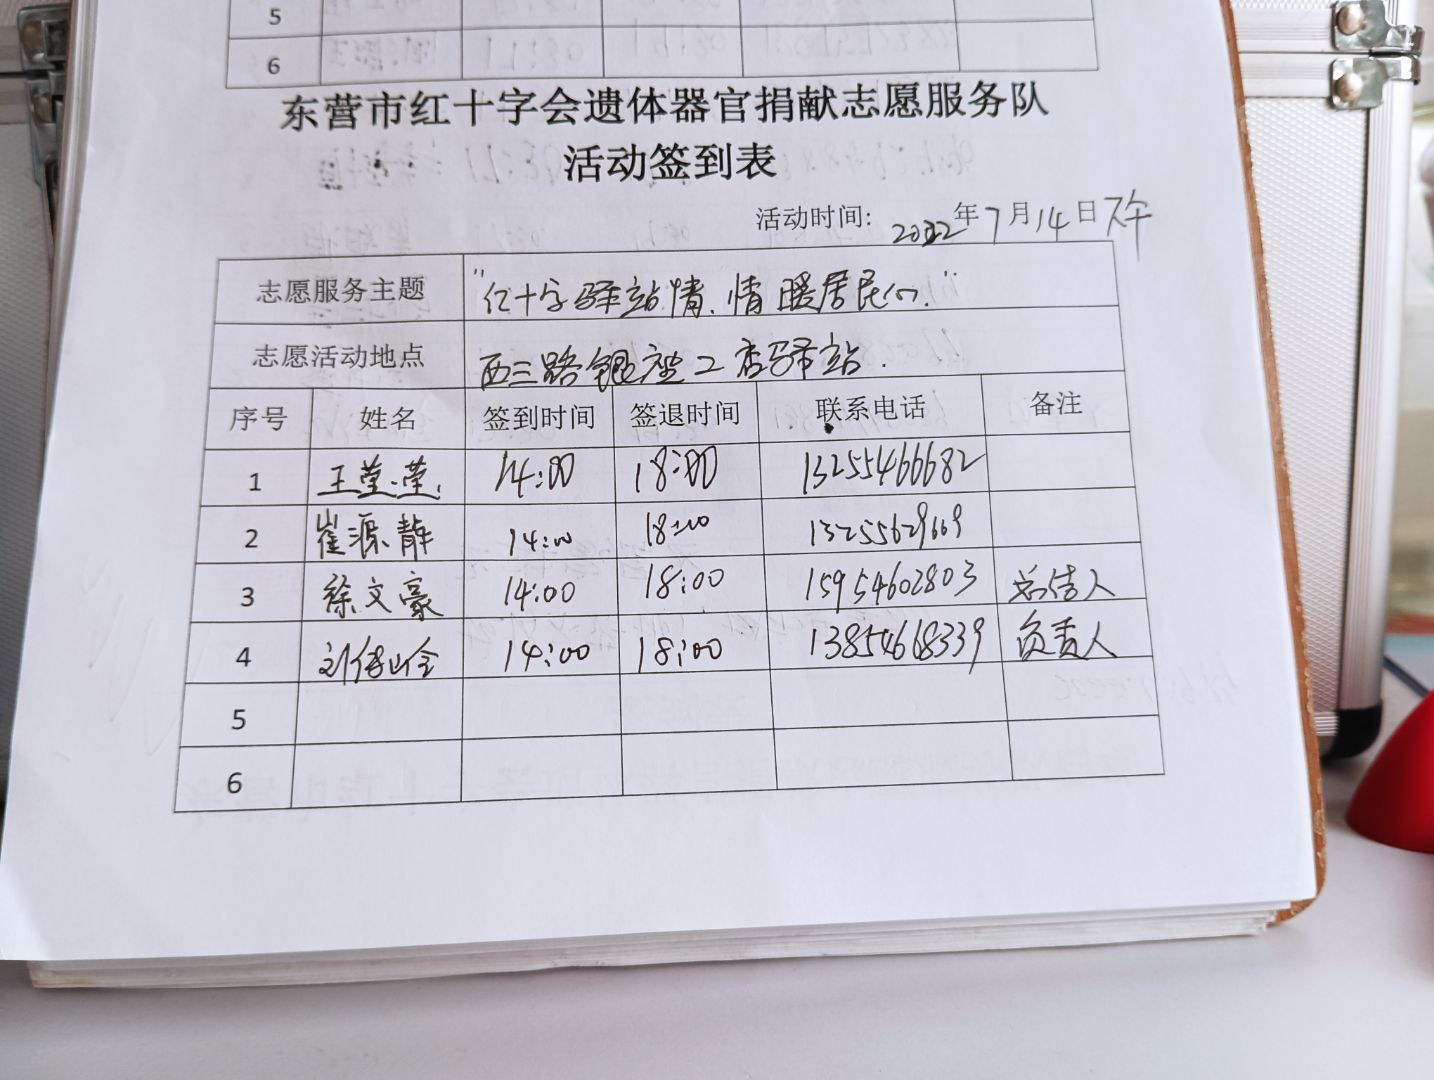 5
6
东营市红十字会遗体器官捐献志愿服务队
活动签到表
活动时间: 2022年7月14日下午
志愿服务主题 "红十字驿站情、情暖居民心."
志愿活动地点 西三路银座2店驿站.
序号 姓名 签到时间 签退时间 联系电话 备注
1 王莹莹 14:00 18:00 13255466682
2 崔源静 14:00 18:00 13255629669
3 徐文豪 14:00 18:00 15954602803 总结人
4 刘俊山全 14:00 18:00 13854668339 负责人
5
6